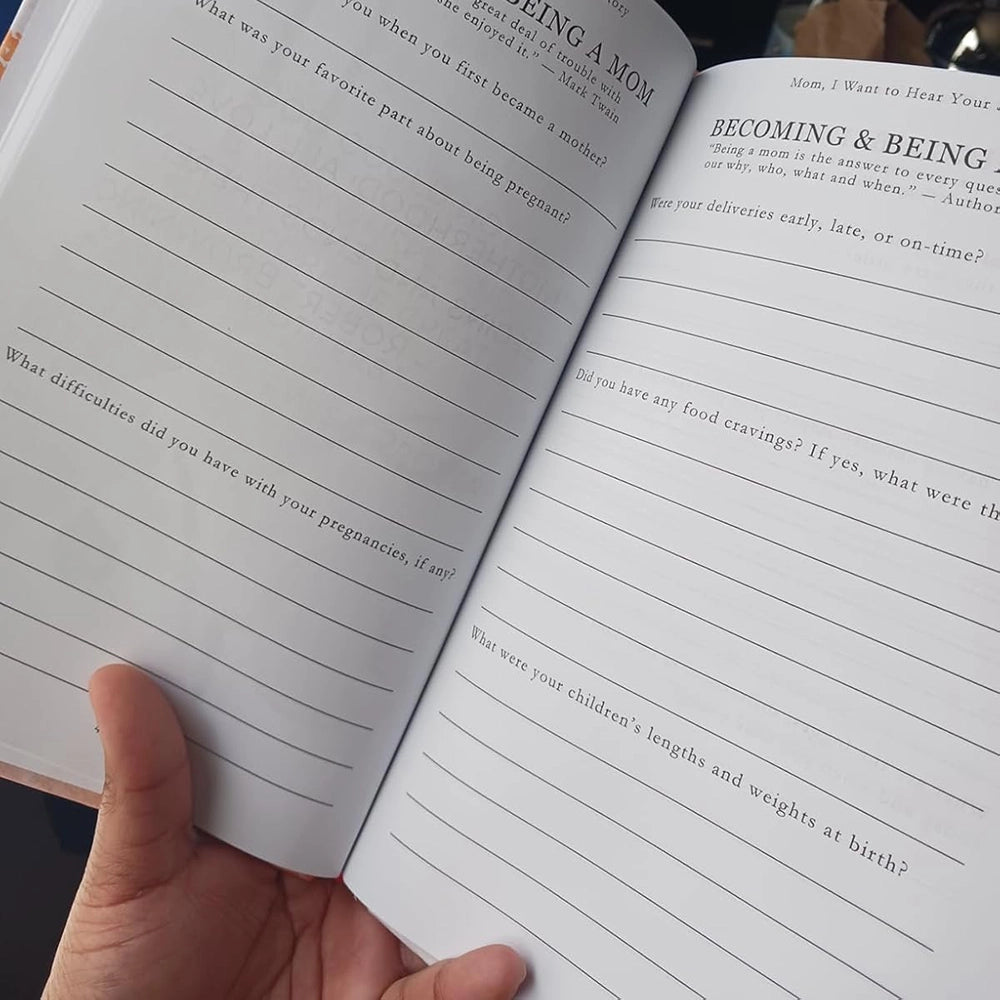 BEING A MOM
great deal of trouble with
one enjoyed it.” — Mark Twain
you when you first became a mother?
What was your favorite part about being pregnant?
What difficulties did you have with your pregnancies, if any?
Mom, I Want to Hear Your
BECOMING & BEING
“Being a mom is the answer to every
our why, who, what and when.” — Author
Were your deliveries early, late, or on-time?
Did you have any food cravings? If yes, what were
What were your children’s lengths and weights at birth?